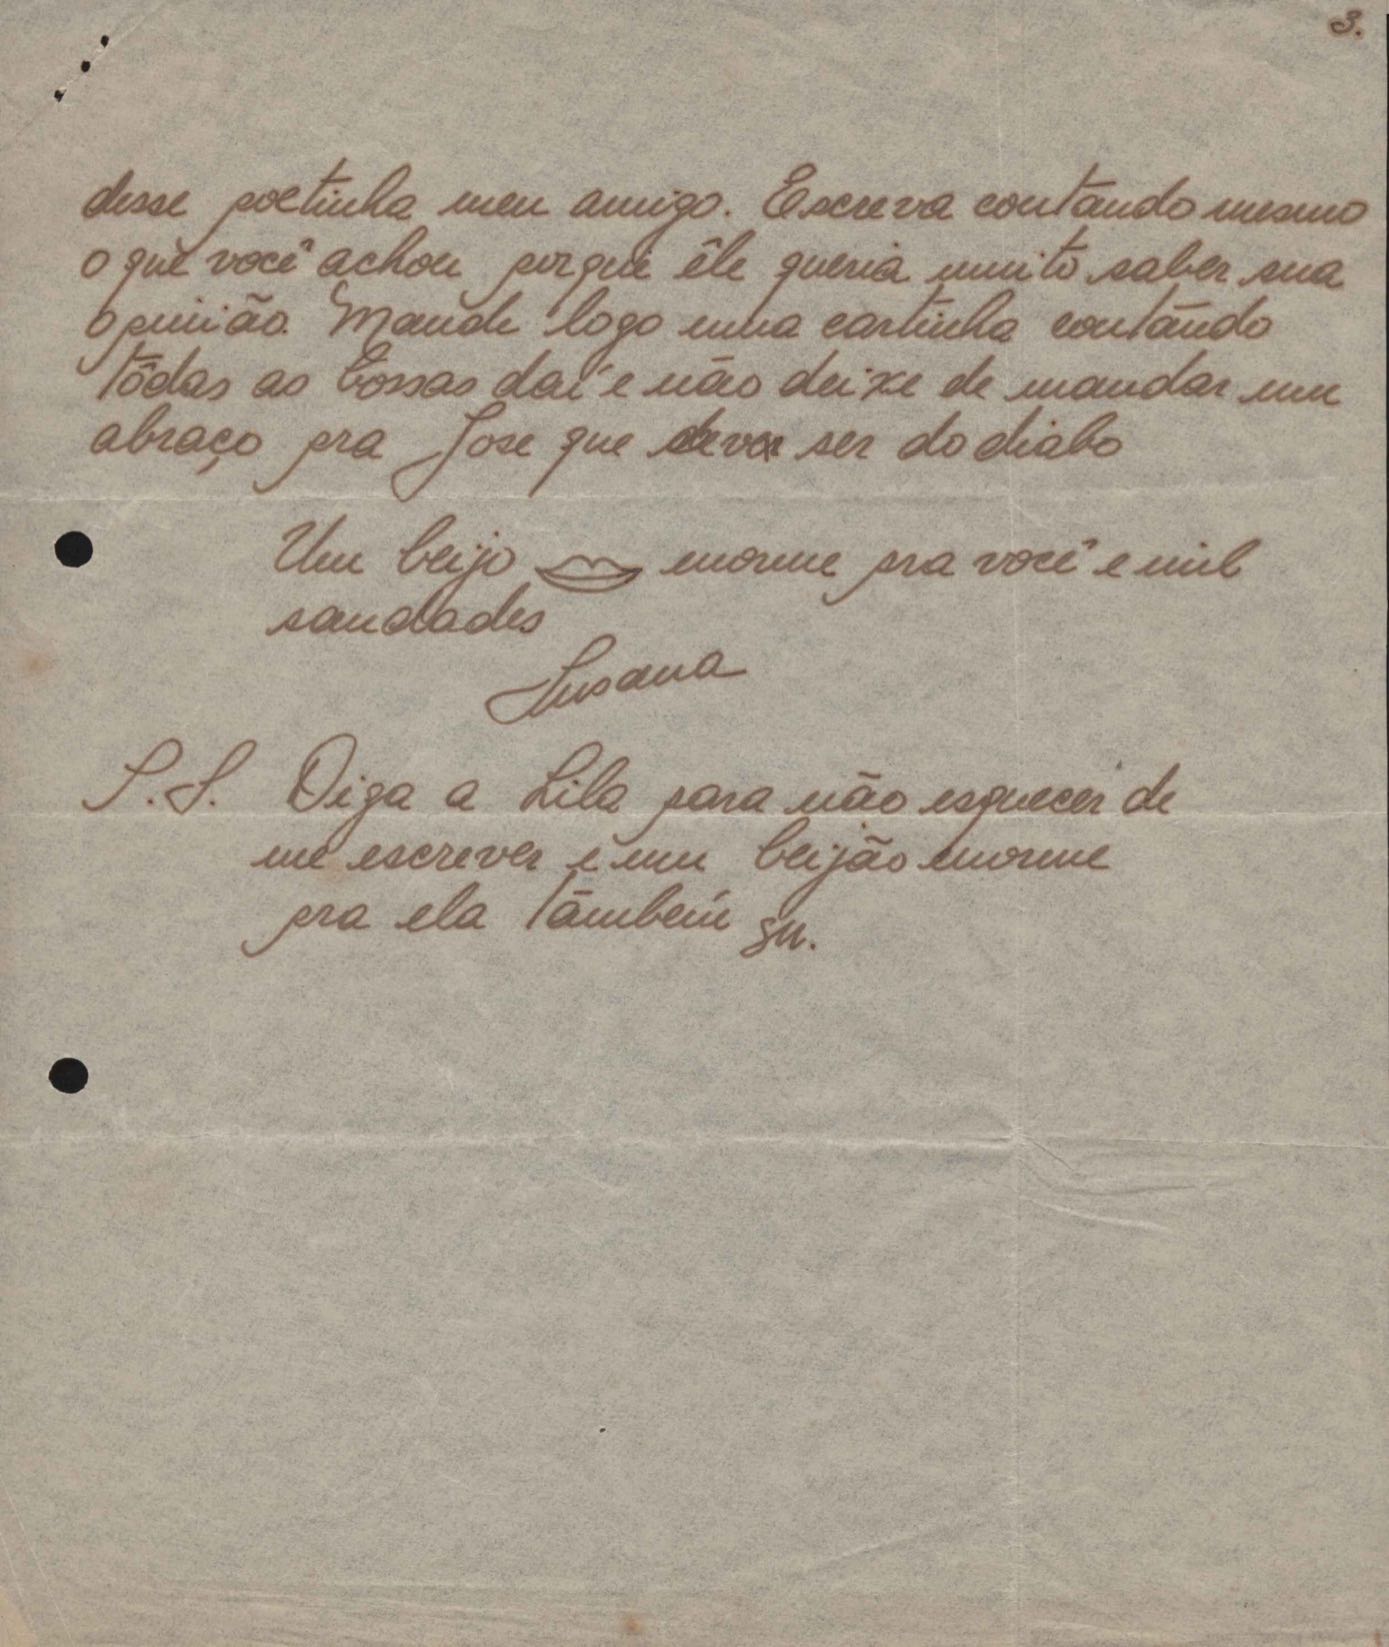 3.
desse poetinha meu amigo. Escreva contando mesmo
o que você achou porque êle queria muito saber sua
opinião. Mande logo uma cartinha contando
tôdas as bossas daí e não deixe de mandar um
abraço pra Jose que deve ser do diabo
Um beijo enorme pra você e mil
saudades
Susana
P.S. Diga a Lila para não esquecer de
me escrever e um beijão enorme
pra ela também su.